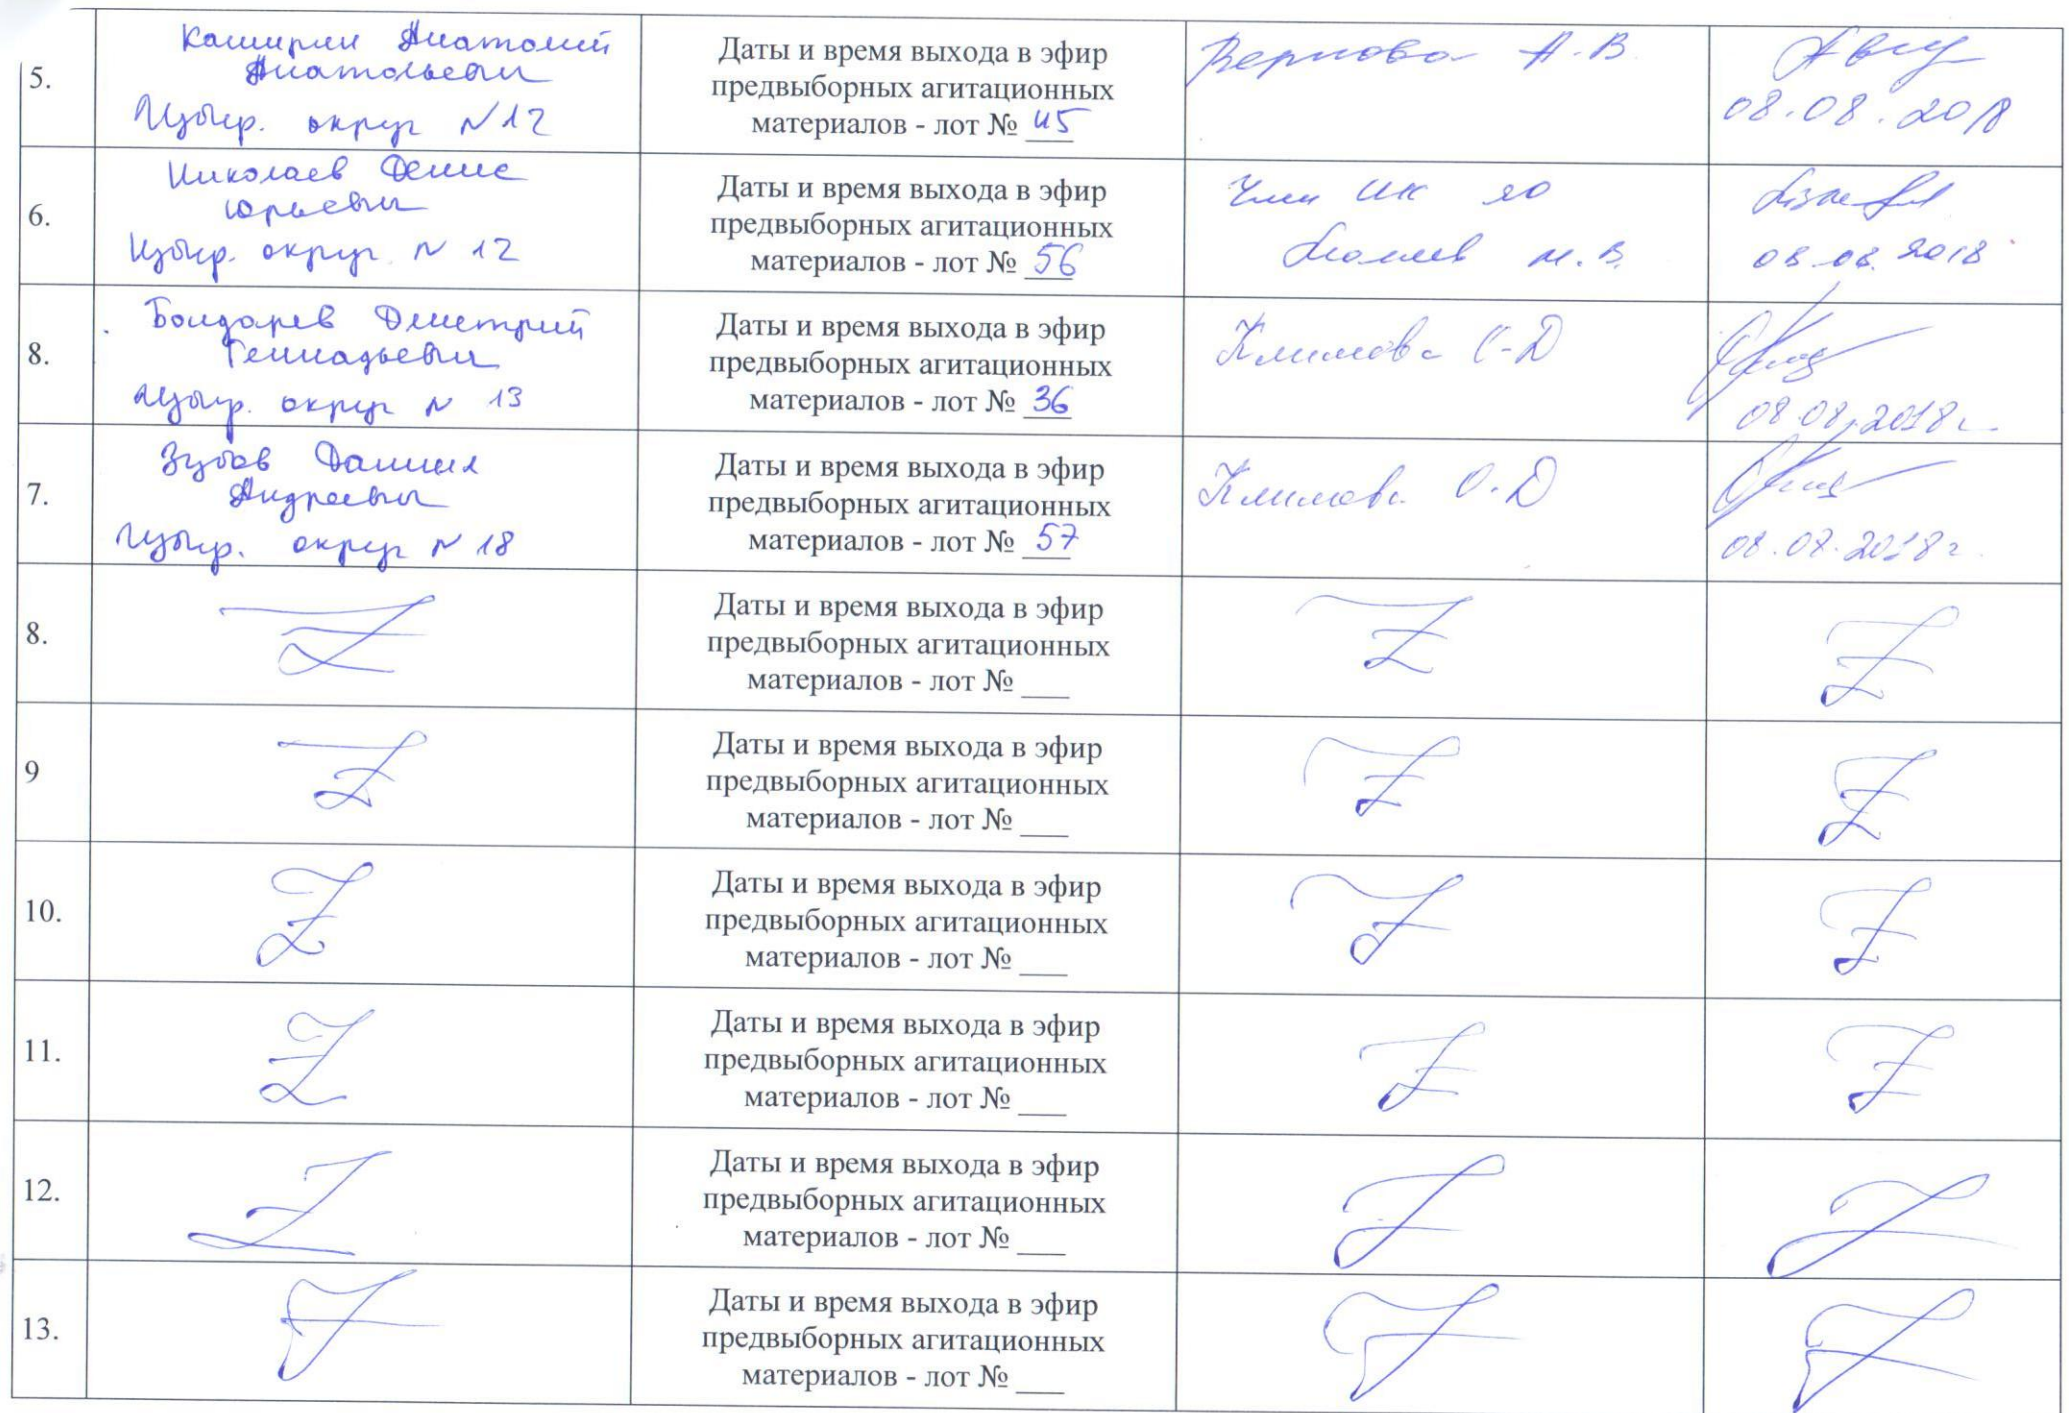 5.
Каширин Анатолий
Анатольевич
Избир. округ N 12
Даты и время выхода в эфир
предвыборных агитационных
материалов - лот № 45
Вернова А.В.
08.08.2018
6.
Николаев Денис
Юрьевич
Избир. округ N 12
Даты и время выхода в эфир
предвыборных агитационных
материалов - лот № 56
Член ИК ЯО
М.В.
08.08.2018
8.
Бондарев Дмитрий
Геннадьевич
Избир. округ N 13
Даты и время выхода в эфир
предвыборных агитационных
материалов - лот № 36
Климова О.Д
08.08.2018 г.
7.
Зубов Даниил
Андреевич
Избир. округ N 18
Даты и время выхода в эфир
предвыборных агитационных
материалов - лот № 57
Климова О.Д
08.08.2018 г.
8.
Даты и время выхода в эфир
предвыборных агитационных
материалов - лот № ___
9
Даты и время выхода в эфир
предвыборных агитационных
материалов - лот № ___
10.
Даты и время выхода в эфир
предвыборных агитационных
материалов - лот № ___
11.
Даты и время выхода в эфир
предвыборных агитационных
материалов - лот № ___
12.
Даты и время выхода в эфир
предвыборных агитационных
материалов - лот № ___
13.
Даты и время выхода в эфир
предвыборных агитационных
материалов - лот № ___